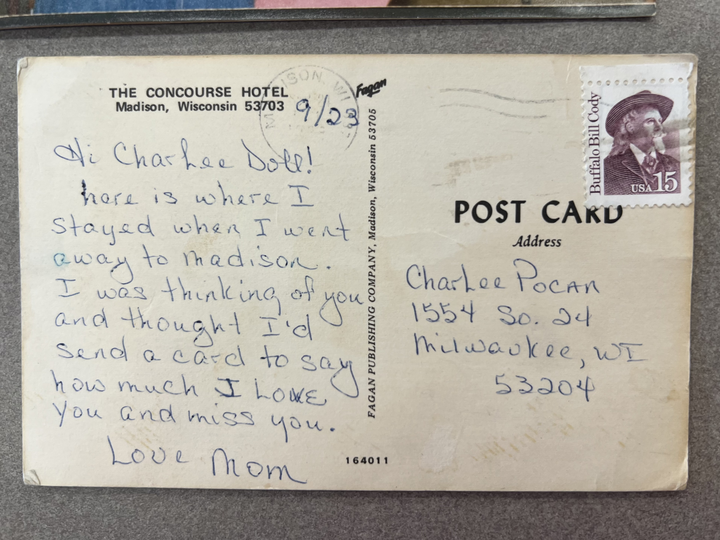 THE CONCOURSE HOTEL
Madison, Wisconsin 53703
9/23
Hi CharLee Doll!
here is where I
stayed when I went
away to madison.
I was thinking of you
and thought I'd
send a card to say
how much I Love
you and miss you.
Love Mom
Fagan
FAGAN PUBLISHING COMPANY, Madison, Wisconsin 53705
164011
Buffalo Bill Cody
USA 15
POST CARD
Address
CharLee Pocan
1554 So. 24
Milwaukee, WI
53204